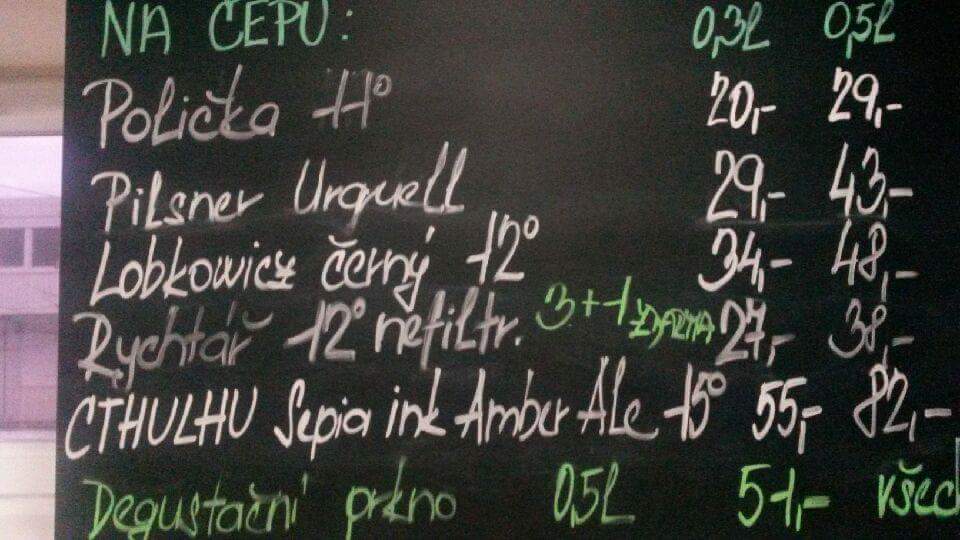 NA ČEPU: 0,3L 0,5L
Polička 11° 20,- 29,-
Pilsner Urquell 29,- 43,-
Lobkowicz černý 12° 34,- 48,-
Rychtář 12° nefiltr. 3+1 ZDARMA 27,- 38,-
CTHULHU Sepia ink Amber Ale 15° 55,- 82,-
Degustační prkno 0,5L 51,- všec